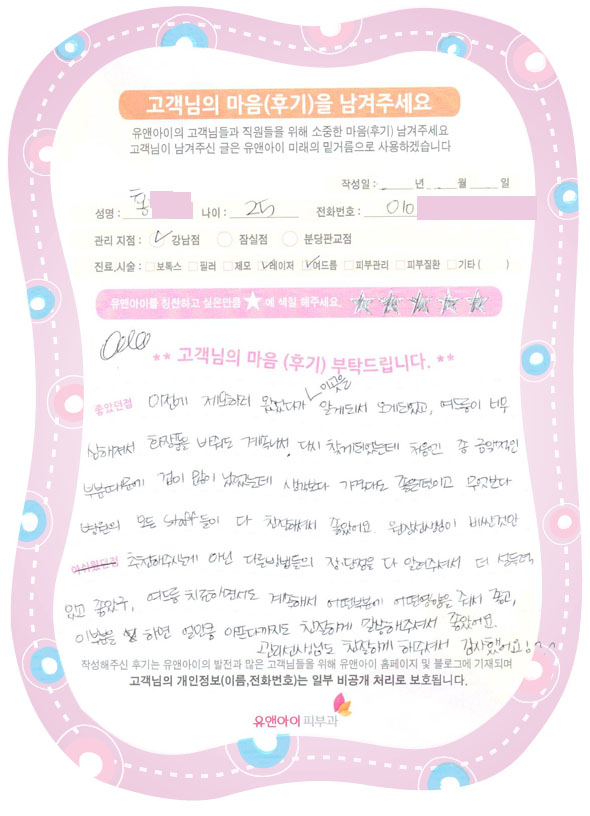 고객님의 마음(후기)을 남겨주세요
유앤아이의 고객님들과 직원들을 위해 소중한 마음(후기) 남겨주세요
고객님이 남겨주신 글은 유앤아이 미래의 밑거름으로 사용하겠습니다
작성일 : 년 월 일
성명 : 홍 나이 : 25 전화번호 : 010
관리 지점 : 강남점 잠실점 분당판교점
진료,시술 : 보톡스 필러 제모 레이저 여드름 피부관리 피부질환 기타 ( )
유앤아이를 칭찬하고 싶은만큼 ★ 에 색칠 해주세요.
** 고객님의 마음 (후기) 부탁드립니다. **
이곳을
좋았던점 이전에 제모하러 왔었다가 알게되서 오게되었고, 여드름이 너무
심해져서 화장품을 바꿔도 계속나서, 다시 찾게되었는데 처음엔 좀 금액적인
부분때문에 겁이 많이 났었는데 생각보다 가격대도 좋은편이고 무엇보다
병원의 모든 staff들이 다 친절하셔서 좋았어요. 원장선생님이 비싼것만
아쉬웠던점 추천해주시는게 아닌 다른방법들의 장·단점을 다 알려주셔서 더 설득력
있고 좋았구, 여드름 치료하면서도 계속해서 어떤부분에 어떤영향을 줘서 좋고,
이부분을 하면 얼만큼 아프다까지도 친절하게 말씀해주셔서 좋았어요.
관리선생님도 친절하게 해주셔서 감사했어요!^^
작성해주신 후기는 유앤아이의 발전과 많은 고객님들을 위해 유앤아이 홈페이지 및 블로그에 기재되며
고객님의 개인정보(이름,전화번호)는 일부 비공개 처리로 보호됩니다.
유앤아이피부과